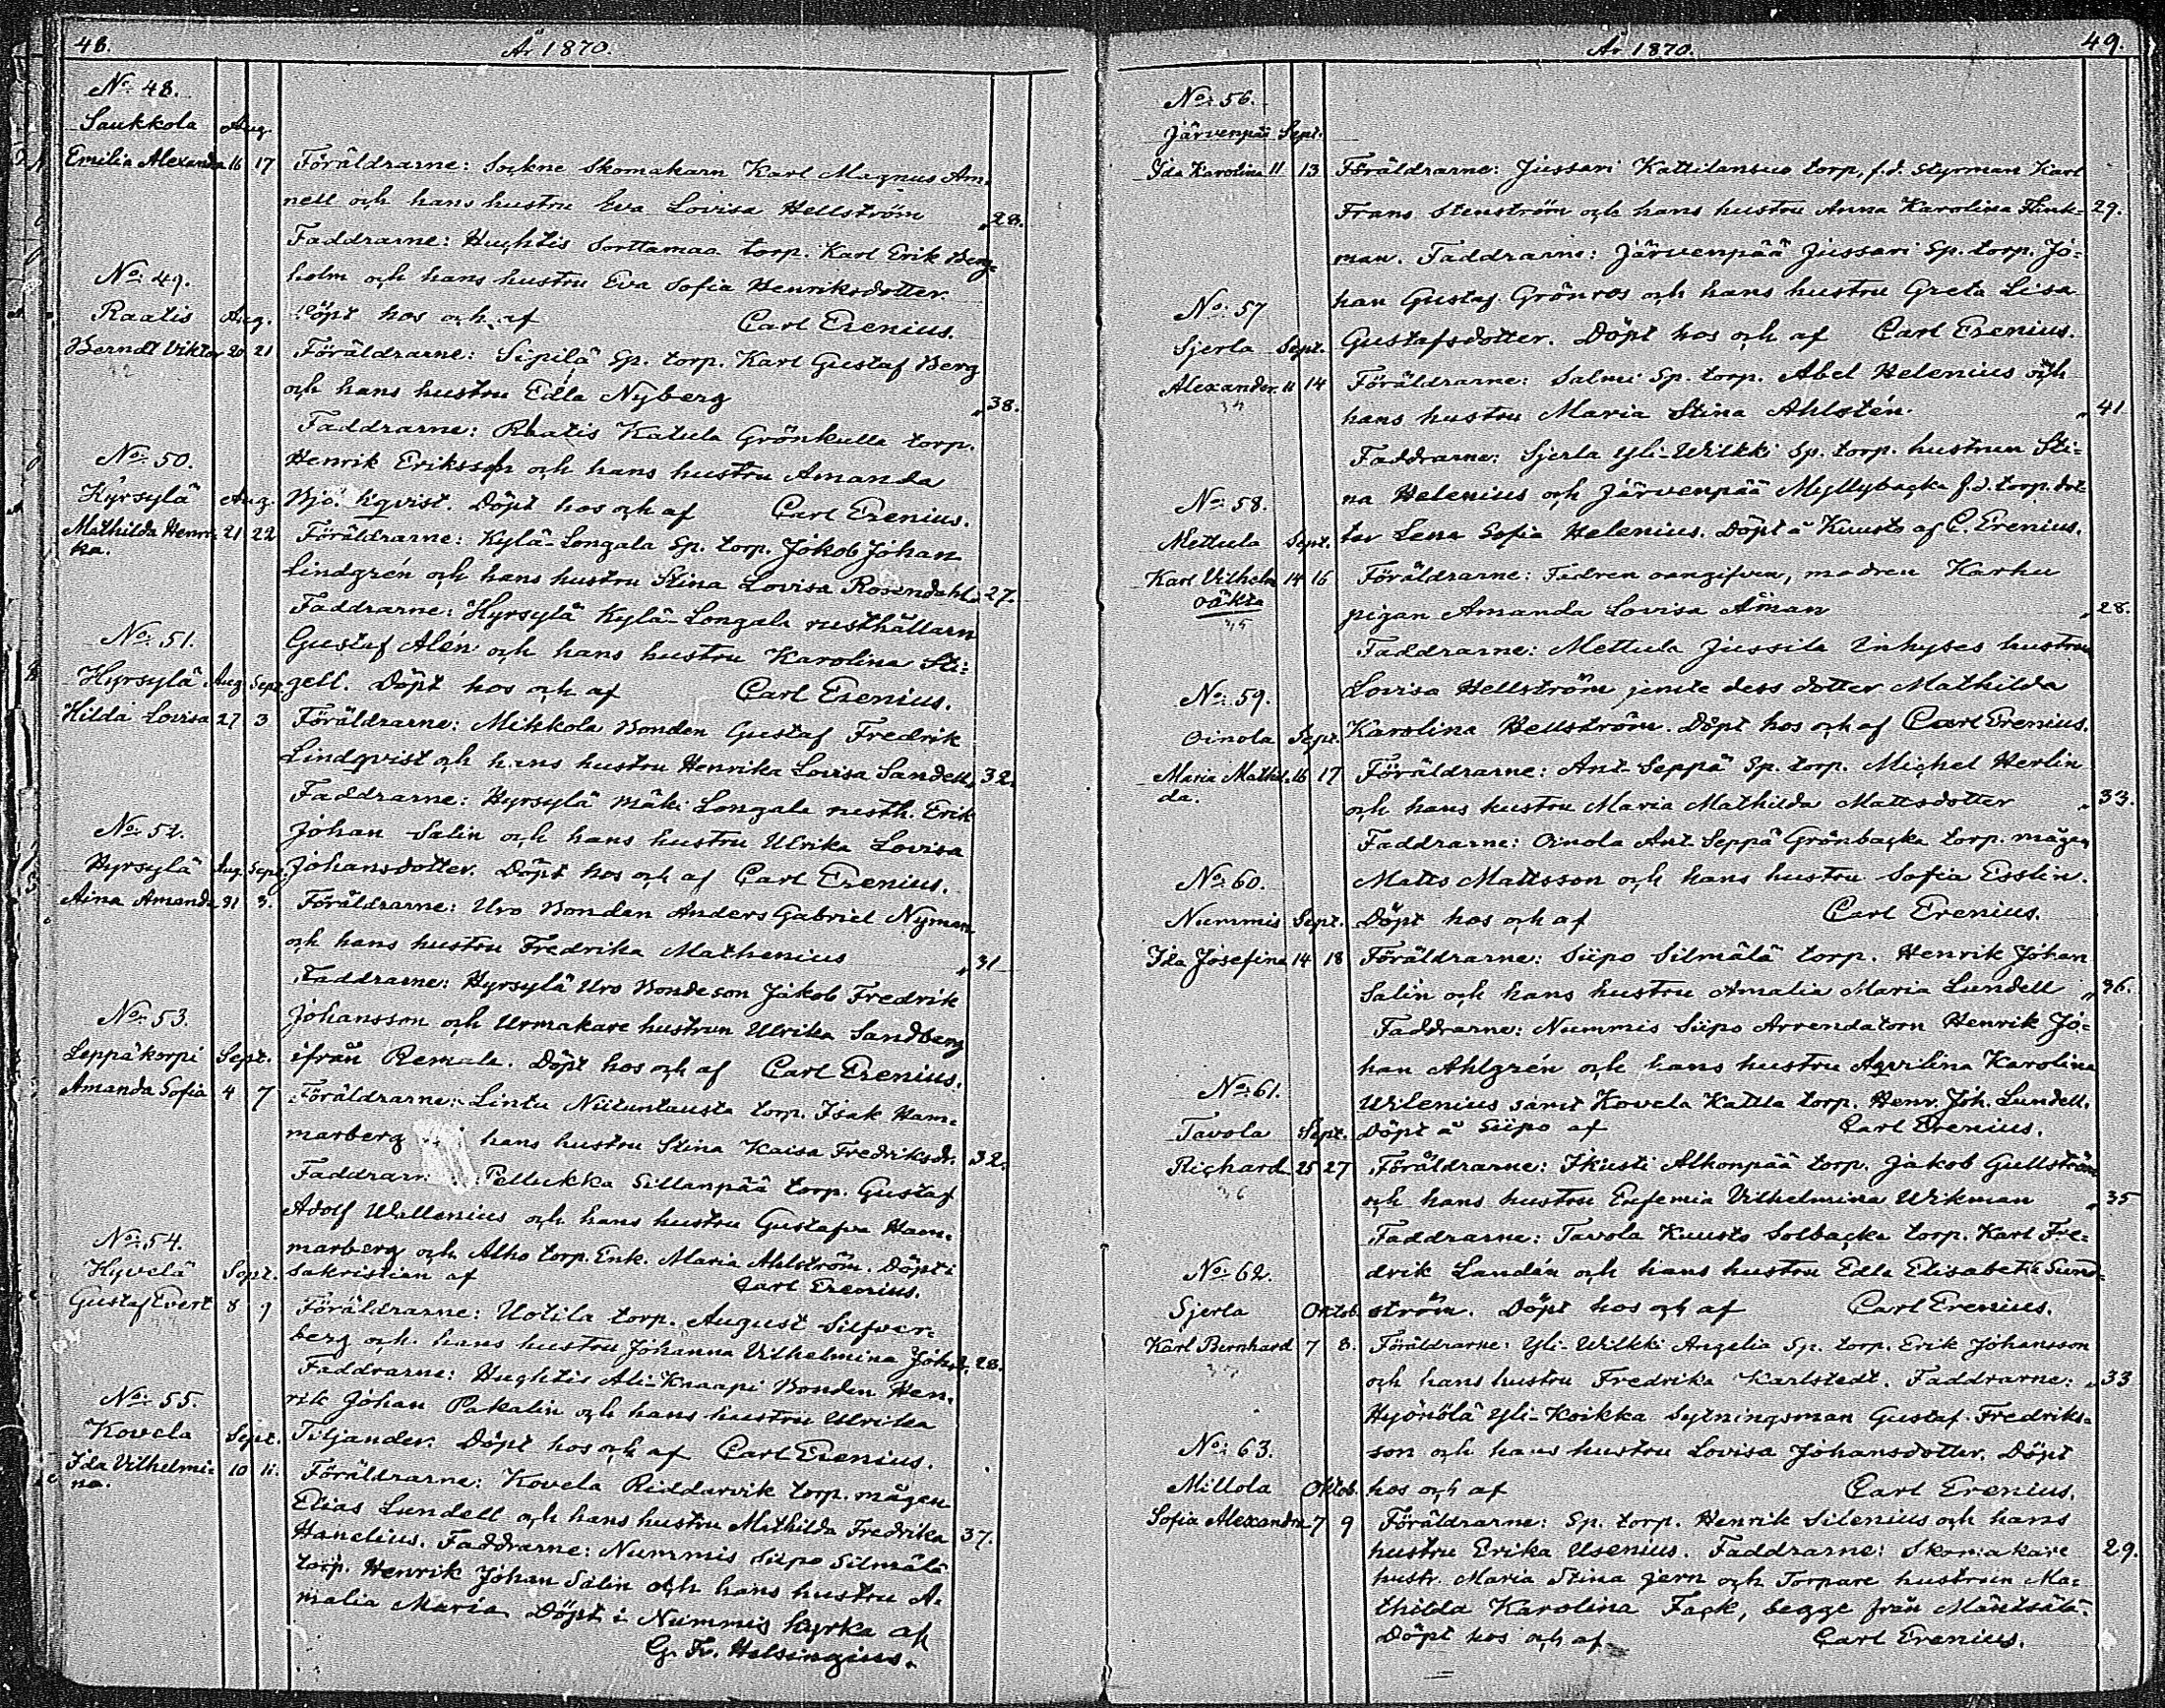 48.
År 1870.
No. 48.
Saukkola Aug.
Emilia Alexandra 16 17 Föräldrarne: Sockne Skomakarn Karl Magnus Am=
nell och hans hustru Eva Lovisa Hellström „28.
Faddrarne: Huhtis Sorttamaa torp. Karl Erik Berg=
No. 49.
holm och hans hustru Eva Sofia Henriksdotter.
Raatis Aug. Döpt hos och af Carl Erenius.
Berndt Viktor 20 21 Föräldrarne: Sipilä Sp. torp. Karl Gustaf Berg
och hans hustru Edla Nyberg „38.
Faddrarne: Raatis Katula Grönkulla torp.
No. 50.
Henrik Eriksson och hans hustru Amanda
Hyrsylä Aug. Bjo. kqvist. Döpt hos och af Carl Erenius.
Mathilda Henri= 21 22 Föräldrarne: Kylä-Longala Sp. torp. Jakob Johan
ka.
Lindgrén och hans hustru Stina Lovisa Rosendahl „27.
Faddrarne: Hyrsylä Kylä-Longala rusthållarn
No. 51.
Gustaf Alén och hans hustru Karolina Sti=
Hyrsylä Aug. Sept. gell. Döpt hos och af Carl Erenius.
Hilda Lovisa 27 3 Föräldrarne: Mikkola Bonden Gustaf Fredrik
Lindqvist och hans hustru Henrika Lovisa Sandell „32.
Faddrarne: Hyrsylä Mäki Longala rusth. Erik
No. 52.
Johan Salin och hans hustru Ulrika Lovisa
Hyrsylä Aug. Sept. Johansdotter. Döpt hos och af Carl Erenius.
Aina Amanda 31 3. Föräldrarne: Uro Bonden Anders Gabriel Nyman
och hans hustru Fredrika Mathenius „31
Faddrarne: Hyrsylä Uro Bondeson Jakob Fredrik
No. 53.
Johansson och Urmakare hustrun Ulrika Sandberg
Leppäkorpi Sept. ifrån Remala. Döpt hos och af Carl Erenius.
Amanda Sofia 4 7 Föräldrarne: Lintu Niituntausta torp. Isak Ham=
marberg hans hustru Stina Kaisa Fredriksdr. „32.
Faddrarn Pellukka Sillanpää torp. Gustaf
Adolf Wallenius och hans hustru Gustafva Ham=
No. 54.
marberg och Alho torp. Enk. Maria Ahlström. Döpt i
Hyvelä Sept. Sakristian af Carl Erenius.
Gustaf Evert 8 9 Föräldrarne: Uotila torp. August Silfver=
berg och hans hustru Johanna Vilhelmina Johsd. 28.
Faddrarne: Huhtis Ali-Knaapi Bonden Hen=
No. 55.
rik Johan Pakalin och hans hustru Ulrika
Kovela Sept. Tiljander. Döpt hos och af Carl Erenius.
Ida Vilhelmi= 10 11. Föräldrarne: Kovela Riddarvik torp. mågen
na.
Elias Lundell och hans hustru Mathilda Fredrika 37.
Hanelius. Faddrarne: Nummis Siipo Silmälä
torp. Henrik Johan Salin och hans hustru A=
malia Maria. Döpt i Nummis kyrka af
G. F. Helsingius.
År 1870.
49.
No. 56.
Järvenpää Sept.
Ida Karolina 11 13 Föräldrarne: Jussari Kattilansuo torp. f.d. Styrman Karl
Frans Stenström och hans hustru Anna Karolina Flink= 29.
man. Faddrarne: Järvenpää Jussari Sp. torp. Jo=
No. 57
han Gustaf Grönros och hans hustru Greta Lisa
Sjerla Sept. Gustafsdotter. Döpt hos och af Carl Erenius.
Alexander 11 14 Föräldrarne: Salmi Sp. torp. Abel Helenius och
hans hustru Maria Stina Ahlstén. „41
Faddrarne: Sjerla Yli-Wilkki Sp. torp. hustrun Sti=
No. 58.
na Helenius och Järvenpää Myllybacka f.d. torp. dot=
Mettula Sept. ter Lena Sofia Helenius. Döpt å Kuusto af C. Erenius.
Karl Vilhelm 14 16 Föräldrarne: Fadren oangifven, modren Karhu
oäkta
pigan Amanda Lovisa Åman „28.
Faddrarne: Mettula Jussila Inhyses hustrun
No. 59.
Lovisa Hellström jemte dess dotter Mathilda
Oinola Sept. Karolina Hellström. Döpt hos och af Carl Erenius.
Maria Mathil= 16 17 Föräldrarne: Ant-Seppä Sp. torp. Michel Herlin
da.
och hans hustru Maria Mathilda Mattsdotter „33.
Faddrarne: Oinola Ant-Seppä Grönbacka torp. mågen
No. 60.
Matts Mattsson och hans hustru Sofia Esslin.
Nummis Sept. Döpt hos och af Carl Erenius.
Ida Josefina 14 18 Föräldrarne: Siipo Silmälä torp. Henrik Johan
Salin och hans hustru Amalia Maria Lundell „36.
Faddrarne: Nummis Siipo Arrendatorn Henrik Jo=
han Ahlgrén och hans hustru Aqvilina Karolina
No. 61.
Wilenius samt Kovela Kattla torp. Henr. Joh. Lundell.
Tavola Sept. Döpt å Siipo af Carl Erenius.
Richard 25 27 Föräldrarne: Ikusti Alhonpää torp. Jakob Gullström
och hans hustru Eufemia Vilhelmina Wikman „35
Faddrarne: Tavola Kuusto Solbacka torp. Karl Fre=
No. 62.
drik Landén och hans hustru Edla Elisabeth Sund=
Sjerla Oktob. ström. Döpt hos och af Carl Erenius.
Karl Bernhard 7 8. Föräldrarne: Yli-Wilkki Angelia Sp. torp. Erik Johansson
och hans hustru Fredrika Karlstedt. Faddrarne: „33
Hyönölä Yli-Koikka Sytningsman Gustaf Fredriks=
No. 63.
son och hans hustru Lovisa Johansdotter. Döpt
Millola Oktob. hos och af Carl Erenius.
Sofia Alexandra 7 9 Föräldrarne: Sp. torp. Henrik Silenius och hans
hustru Erika Usenius. Faddrarne: Skomakare 29.
hustr. Maria Stina Jern och Torpare hustrun Ma=
thilda Karolina Fack, begge från Mäntsälä.
Döpt hos och af Carl Erenius.